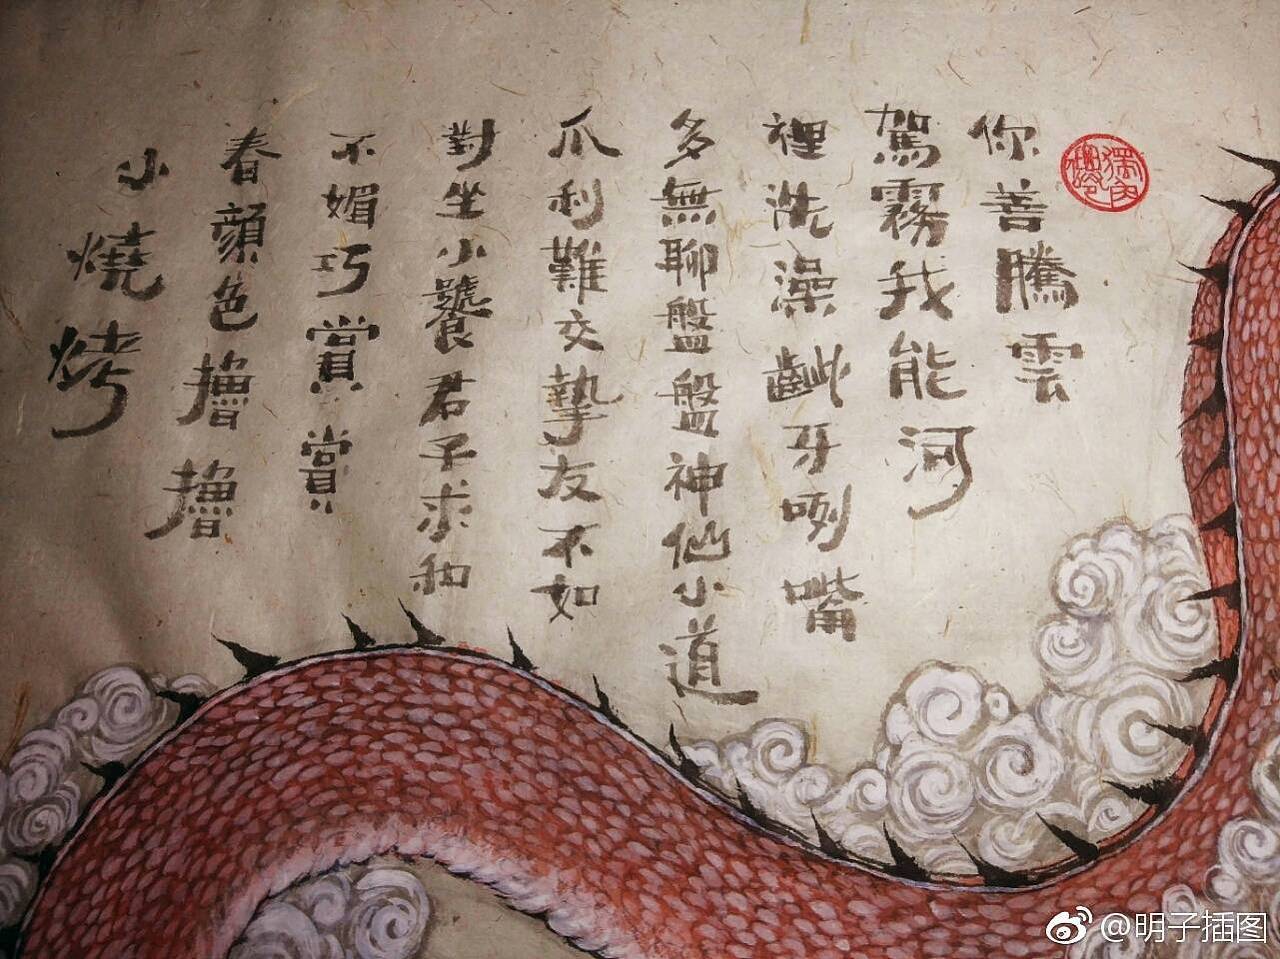 你善騰雲
駕霧我能河
裡洗澡齜牙咧嘴
多無聊盤盤神仙小道
爪利難交摯友不如
對坐小饕君子求和
不媚巧賞賞
春顏色擼擼
小燒烤
@明子插图